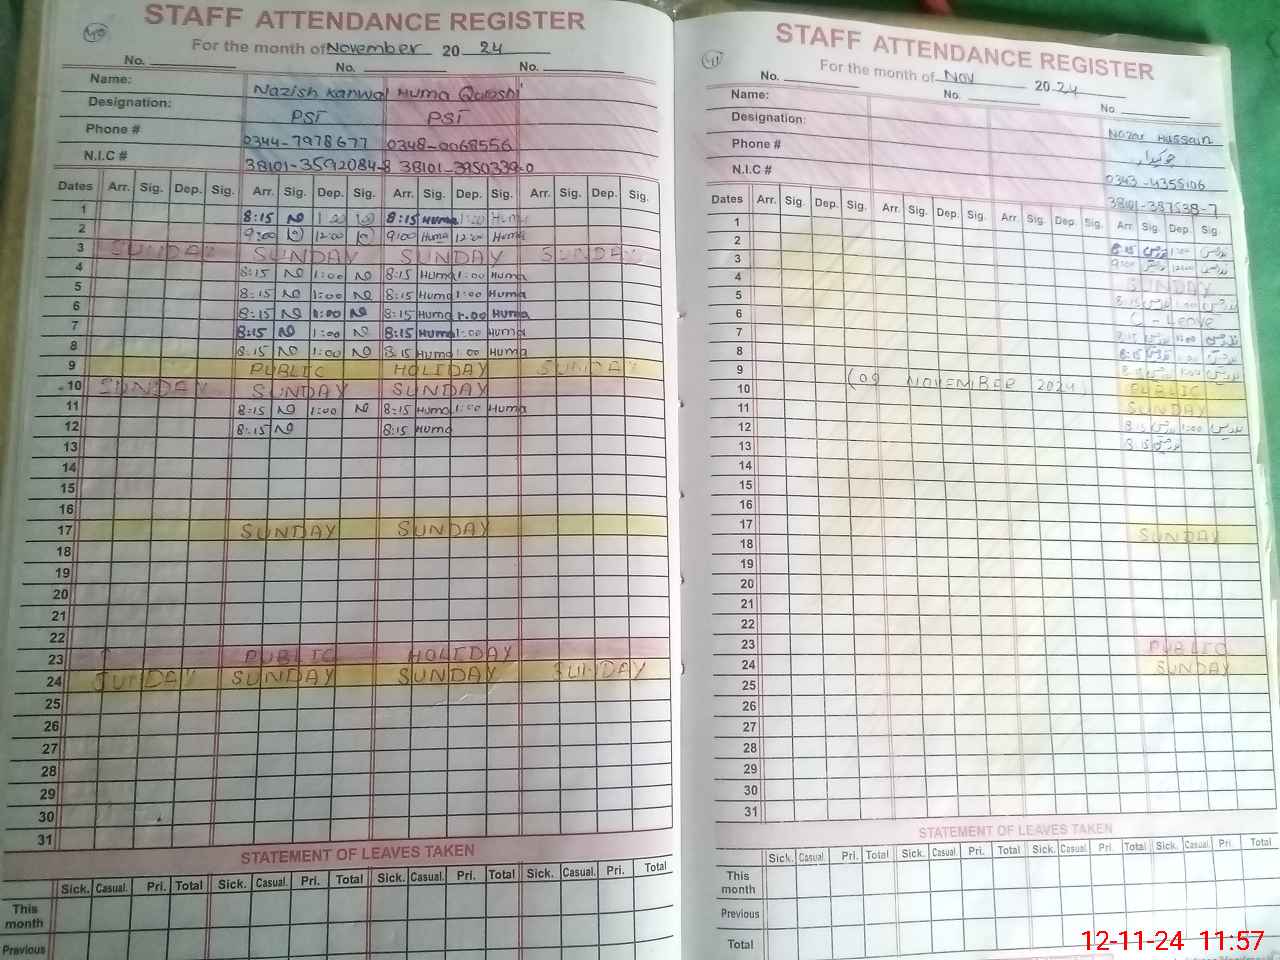 40
STAFF ATTENDANCE REGISTER
For the month of November 20 24
No. No. No.
Name: Nazish Kanwal Huma Qureshi
Designation: PST PST
Phone # 0344-7978677 0348-0068556
N.I.C # 38101-3592084-8 38101-3950339-0
Dates Arr. Sig. Dep. Sig. Arr. Sig. Dep. Sig. Arr. Sig. Dep. Sig. Arr. Sig. Dep. Sig.
1 8:15 1:00 8:15 Huma 1:00 Huma
2 9:00 12:00 9:00 Huma 12:00 Huma
3 SUNDAY SUNDAY SUNDAY SUNDAY
4 8:15 1:00 8:15 Huma 1:00 Huma
5 8:15 1:00 8:15 Huma 1:00 Huma
6 8:15 1:00 8:15 Huma 1:00 Huma
7 8:15 1:00 8:15 Huma 1:00 Huma
8 8:15 1:00 8:15 Huma 1:00 Huma
9 PUBLIC HOLIDAY SUNDAY
10 SUNDAY SUNDAY SUNDAY
11 8:15 1:00 8:15 Huma 1:00 Huma
12 8:15 8:15 Huma
13
14
15
16
17 SUNDAY SUNDAY
18
19
20
21
22
23 PUBLIC HOLIDAY
24 SUNDAY SUNDAY SUNDAY SUNDAY
25
26
27
28
29
30
31
STATEMENT OF LEAVES TAKEN
Sick. Casual. Pri. Total Sick. Casual. Pri. Total Sick. Casual. Pri. Total Sick. Casual. Pri. Total
This month
Previous
STAFF ATTENDANCE REGISTER
For the month of Nov 20 24
No. No. No
Name: Nazar Hussain
Designation: چوکیدار
Phone # 0343-4355106
N.I.C # 38101-387538-7
Dates Arr. Sig. Dep. Sig. Arr. Sig. Dep. Sig. Arr. Sig. Dep. Sig. Arr. Sig. Dep. Sig.
1 8:15 1:00
2 9:00 12:00
3 SUNDAY
4 8:15 1:00
5 C-Leave
6 8:15 1:00
7 8:15 1:00
8 8:15 1:00
9 (09 NOVEMBER 2024) PUBLIC
10 SUNDAY
11 8:15 1:00
12 8:15
13
14
15
16
17 SUNDAY
18
19
20
21
22
23 PUBLIC
24 SUNDAY
25
26
27
28
29
30
31
STATEMENT OF LEAVES TAKEN
Sick. Casual. Pri. Total Sick. Casual. Pri. Total Sick. Casual. Pri. Total Sick. Casual. Pri. Total
This month
Previous
Total
12-11-24 11:57